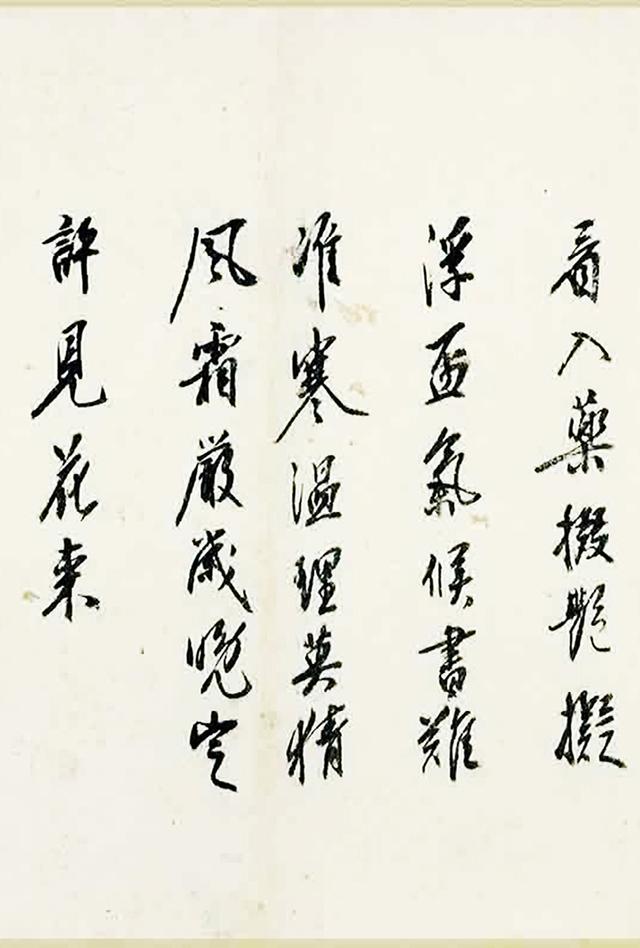 看入藥掇艷擬
浮盃氣候書難
准寒溫理莫猜
風霜嚴歲晚定
許見花來